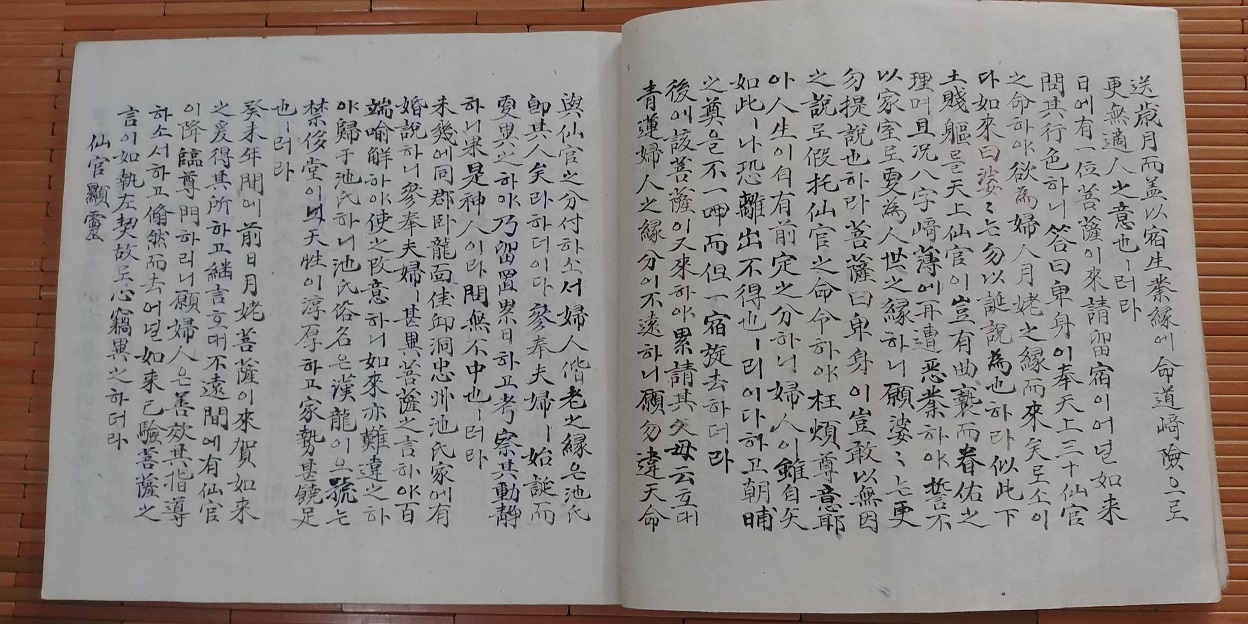 送歲月而盖以宿生業緣에命道崎險으로
更無適人之意也ㅣ러라
日에有一位菩薩이來請留宿이어널如来
問其行色하니答曰卑身이奉天上三十仙官
之命하야欲為婦人月姥之緣而來矣로소이
다如來曰婆〻는勿以誕說為也하라似此下
土賤軀를天上仙官이豈有曲褻而眷佑之
理며且况八字崎薄에再遭惡業하야誓不
以家室로更為人世之緣하니願婆〻는更
勿提說也하라菩薩曰卑身이豈敢以無因
之說로假托仙官之命하야枉煩尊意耶
아人生이自有前定之分하니婦人이雖自矢
如此ㅣ나恐離出不得也ㅣ리이다하고朝晡
之奠은不一呷而但一宿旋去하더라
後에該菩薩이又來하야累請其父母云立대
青蓮婦人之緣分이不遠하니願勿違天命
與仙官之分付하소서婦人偕老之緣은池氏
卽其人矣라하더이다參奉夫婦ㅣ始誕而
更異之하야乃留置累日하고考察其動靜
하니果是神人이라問無不中也ㅣ러라
未幾에同郡卧龍面佳邱洞忠州池氏家에有
婚說하니參奉夫婦ㅣ甚異菩薩之言하야百
端喻解하야使之改意하니如來亦難違之하
야歸于池氏하니池氏俗名은漢龍이으號는
禁侈堂이니天性이淳厚하고家勢甚饒足
也ㅣ러라
癸未年間에前日月姥菩薩이來賀如來
之爰得其所하고繼言立대不遠間에有仙官
이降臨尊門하리니願婦人은善效其指導
하소서하고脩然而去어널如来已驗菩薩之
言이如執左契故로心竊異之하더라
仙官顯靈